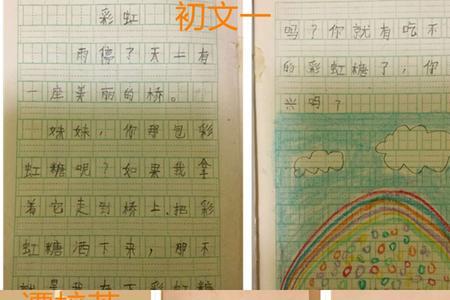 彩虹
初文一
雨停了天上有
一座美丽的桥。
妹妹，你那包彩
虹糖呢？如果我拿
着它走到桥上，把彩
虹糖洒下来，那不
就是我在下彩虹糖
吗？你就有吃不
的彩虹糖了，你
兴吗？